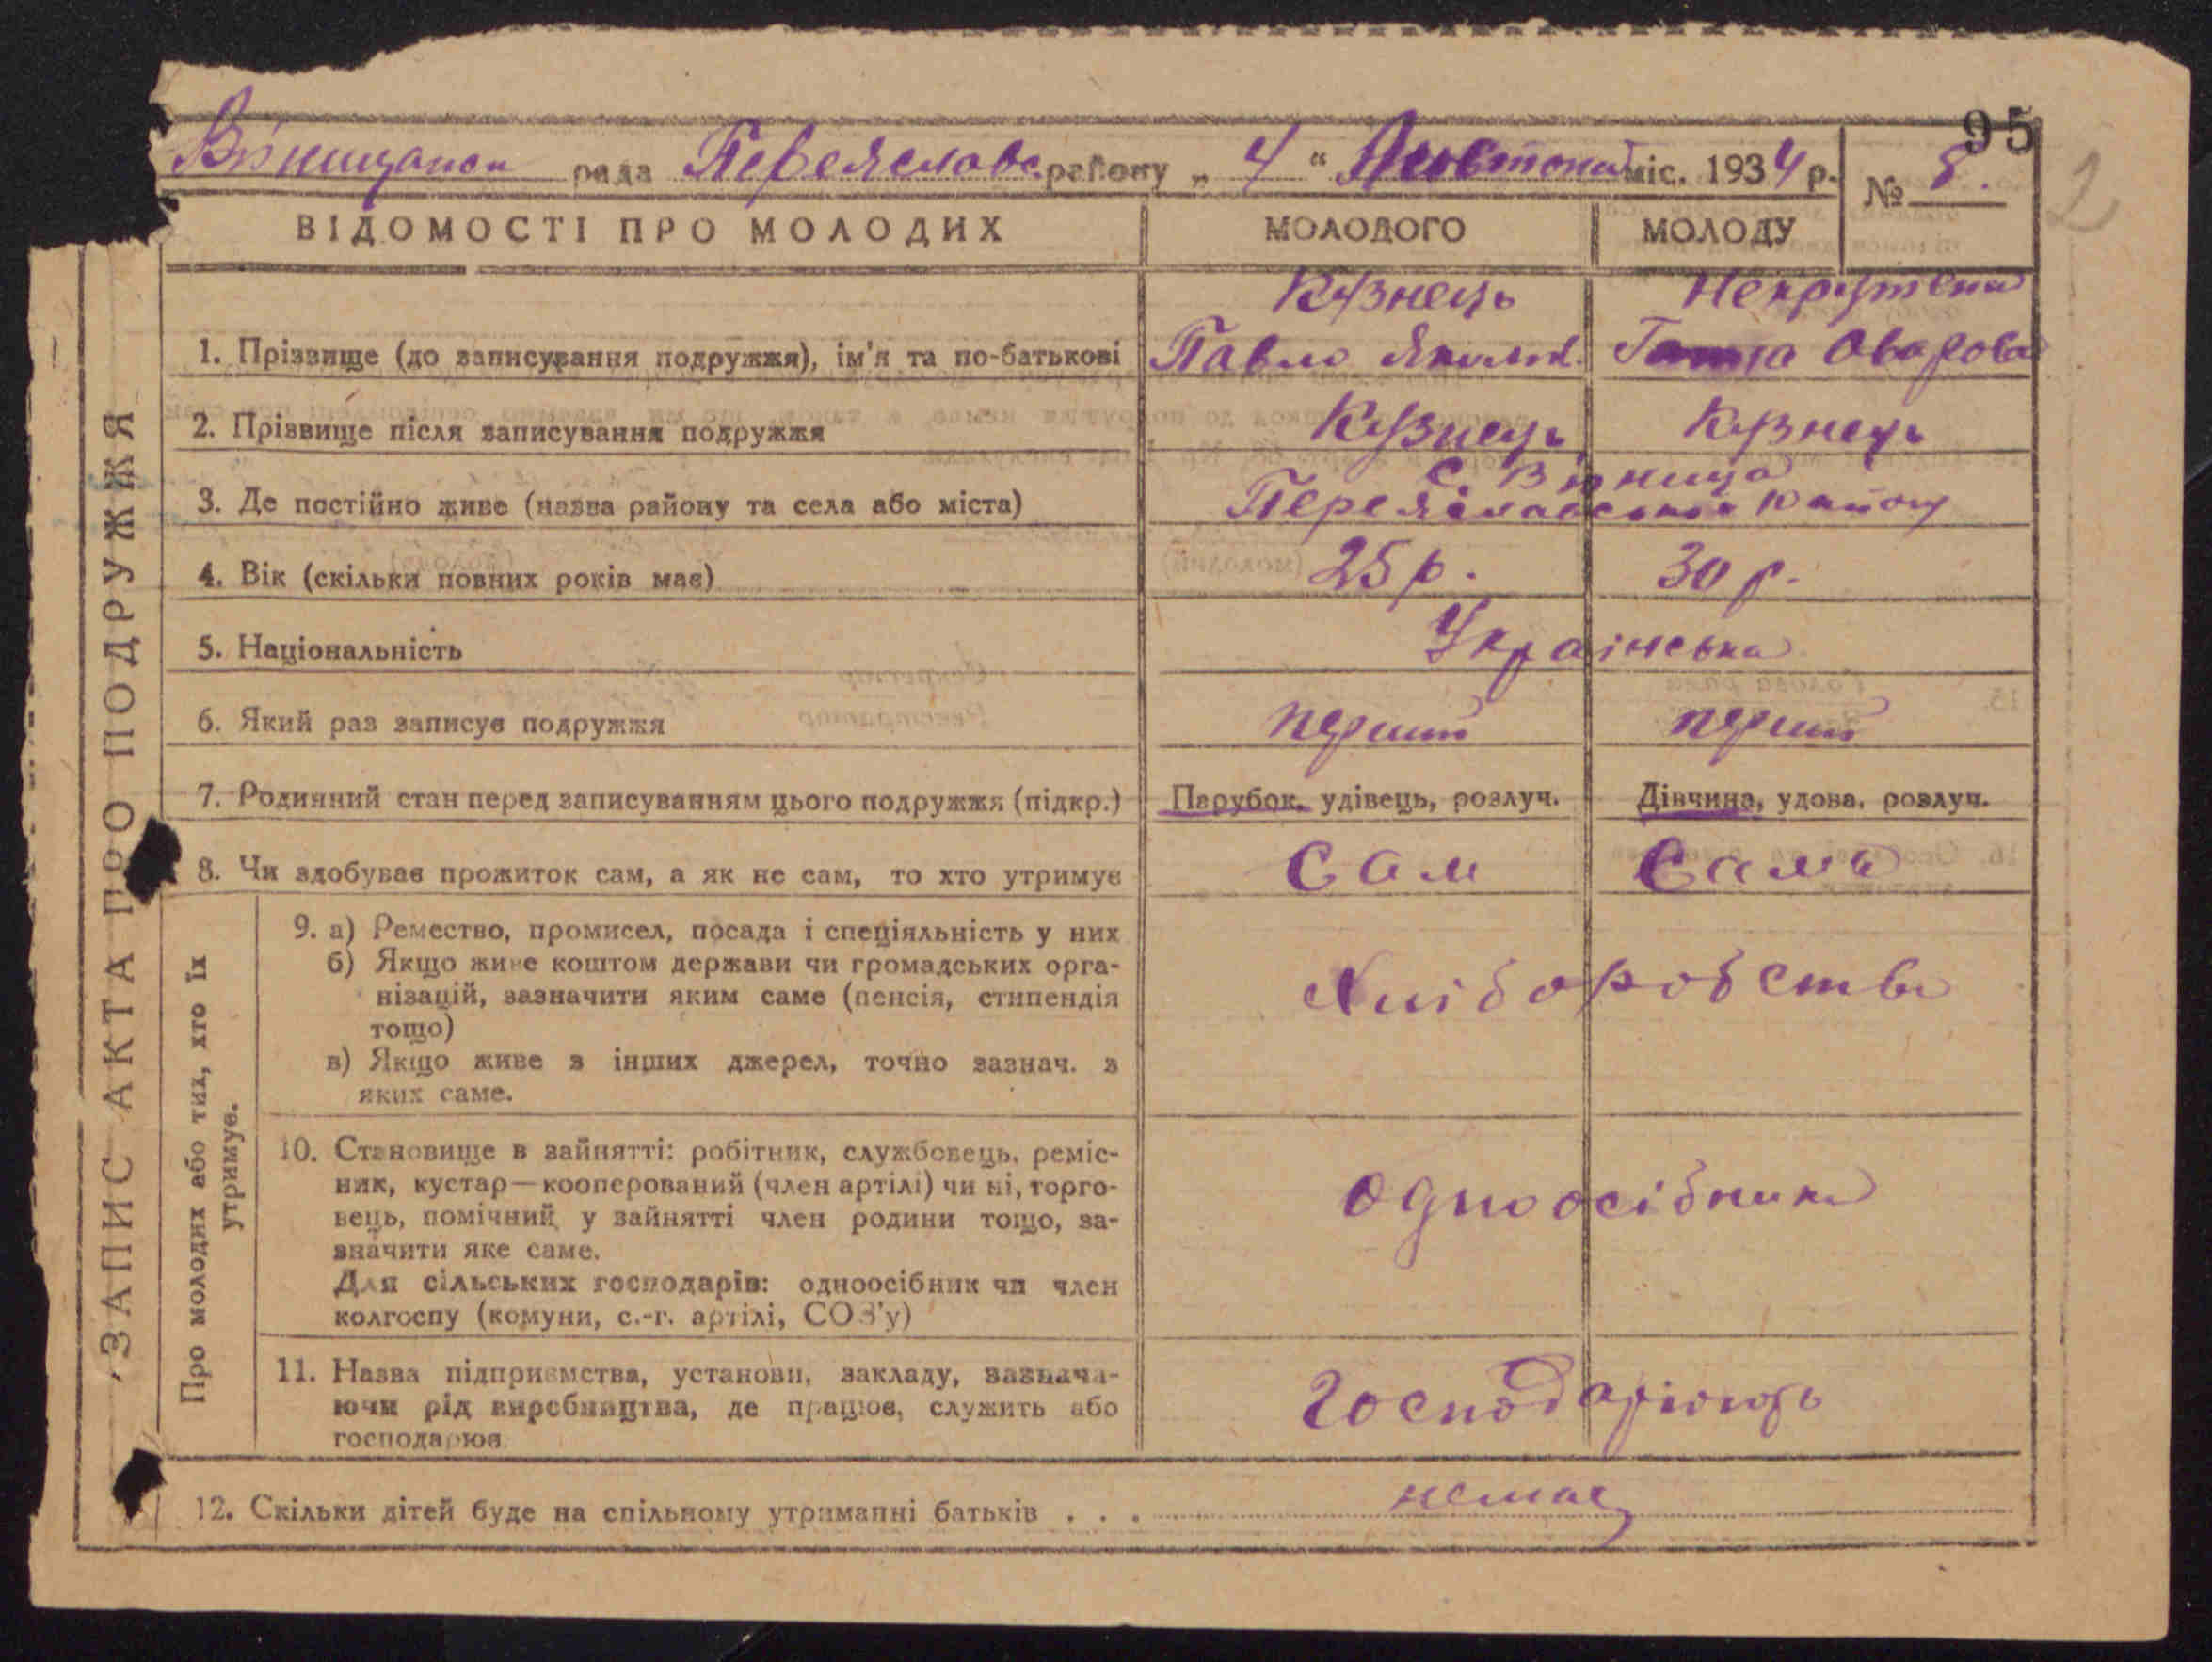 95
2
Вінницанск рада Переяславс. району „ 4 “ Лютого міс. 1934 р. № 8.
ВІДОМОСТІ ПРО МОЛОДИХ МОЛОДОГО МОЛОДУ
Кузнець
1. Прізвище (до записування подружжя), ім'я та по-батькові Павло Оварова
2. Прізвище після записування подружжя Кузнець Кузнець
с. Вінниця
3. Де постійно живе (назва району та села або міста) Переяславського Району
4. Вік (скільки повних років має) 25 р. 30 р.
5. Національність Українська
6. Який раз записує подружжя перший перший
7. Родинний стан перед записуванням цього подружжя (підкр.) Парубок, удівець, розлуч. Дівчина, удова, розлуч.
8. Чи здобуває прожиток сам, а як не сам, то хто утримує Сам Сама
ЗАПИС АКТА ПРО ПОДРУЖЖЯ
Про молодих або тих, хто їх
утримує.
9. а) Ремество, промисел, посада і спеціяльність у них
б) Якщо живе коштом держави чи громадських орга-
нізацій, зазначити яким саме (пенсія, стипендія
тощо)
в) Якщо живе з інших джерел, точно зазнач. з
яких саме.
Хліборобство
10. Становище в зайнятті: робітник, службовець, реміс-
ник, кустар—кооперований (член артілі) чи ні, торго-
вець, помічний у зайнятті член родини тощо, за-
значити яке саме.
Для сільських господарів: одноосібник чи член
колгоспу (комуни, с.-г. артілі, СОЗ'у)
одноосібники
11. Назва підприємства, установи, закладу, зазнача-
ючи рід виробництва, де працює, служить або
господарює
господарюють
12. Скільки дітей буде на спільному утриманні батьків . . . немає